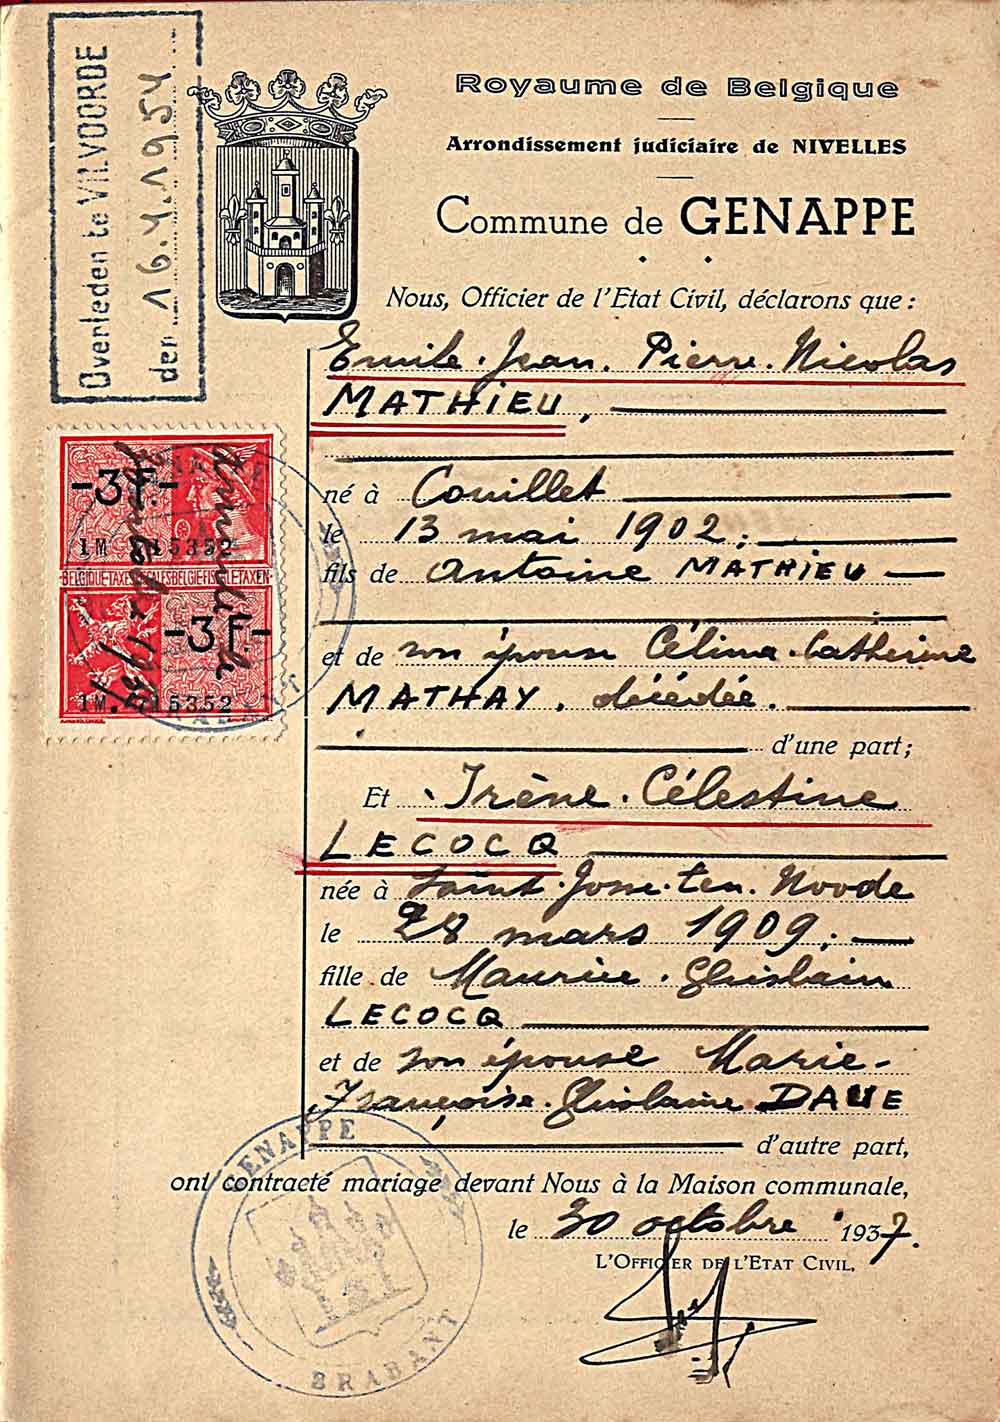 Overleden te VILVOORDE
den 16.4.1954
Royaume de Belgique
Arrondissement judiciaire de NIVELLES
Commune de GENAPPE
Nous, Officier de l'Etat Civil, déclarons que :
Emile. Jean. Pierre. Nicolas
MATHIEU,
né à Couillet
le 13 mai 1902;
fils de Antoine MATHIEU
et de son épouse Célina. Catherine
MATHAY. décédée.
d'une part;
Et Irène. Célestine
LECOCQ
née à Saint. Josse. ten. Noode
le 28 mars 1909;
fille de Maurice. Ghislain
LECOCQ
et de son épouse Marie-
Françoise. Ghislaine DAUE
d'autre part,
ont contracté mariage devant Nous à la Maison communale,
le 30 octobre 1937.
L'Officier de l'Etat Civil,
-3F-
1M 215352
BELGIQUE TAXES FISCALES BELGIE FISCALE TAXEN
-3F-
1M 215352
GENAPPE
BRABANT